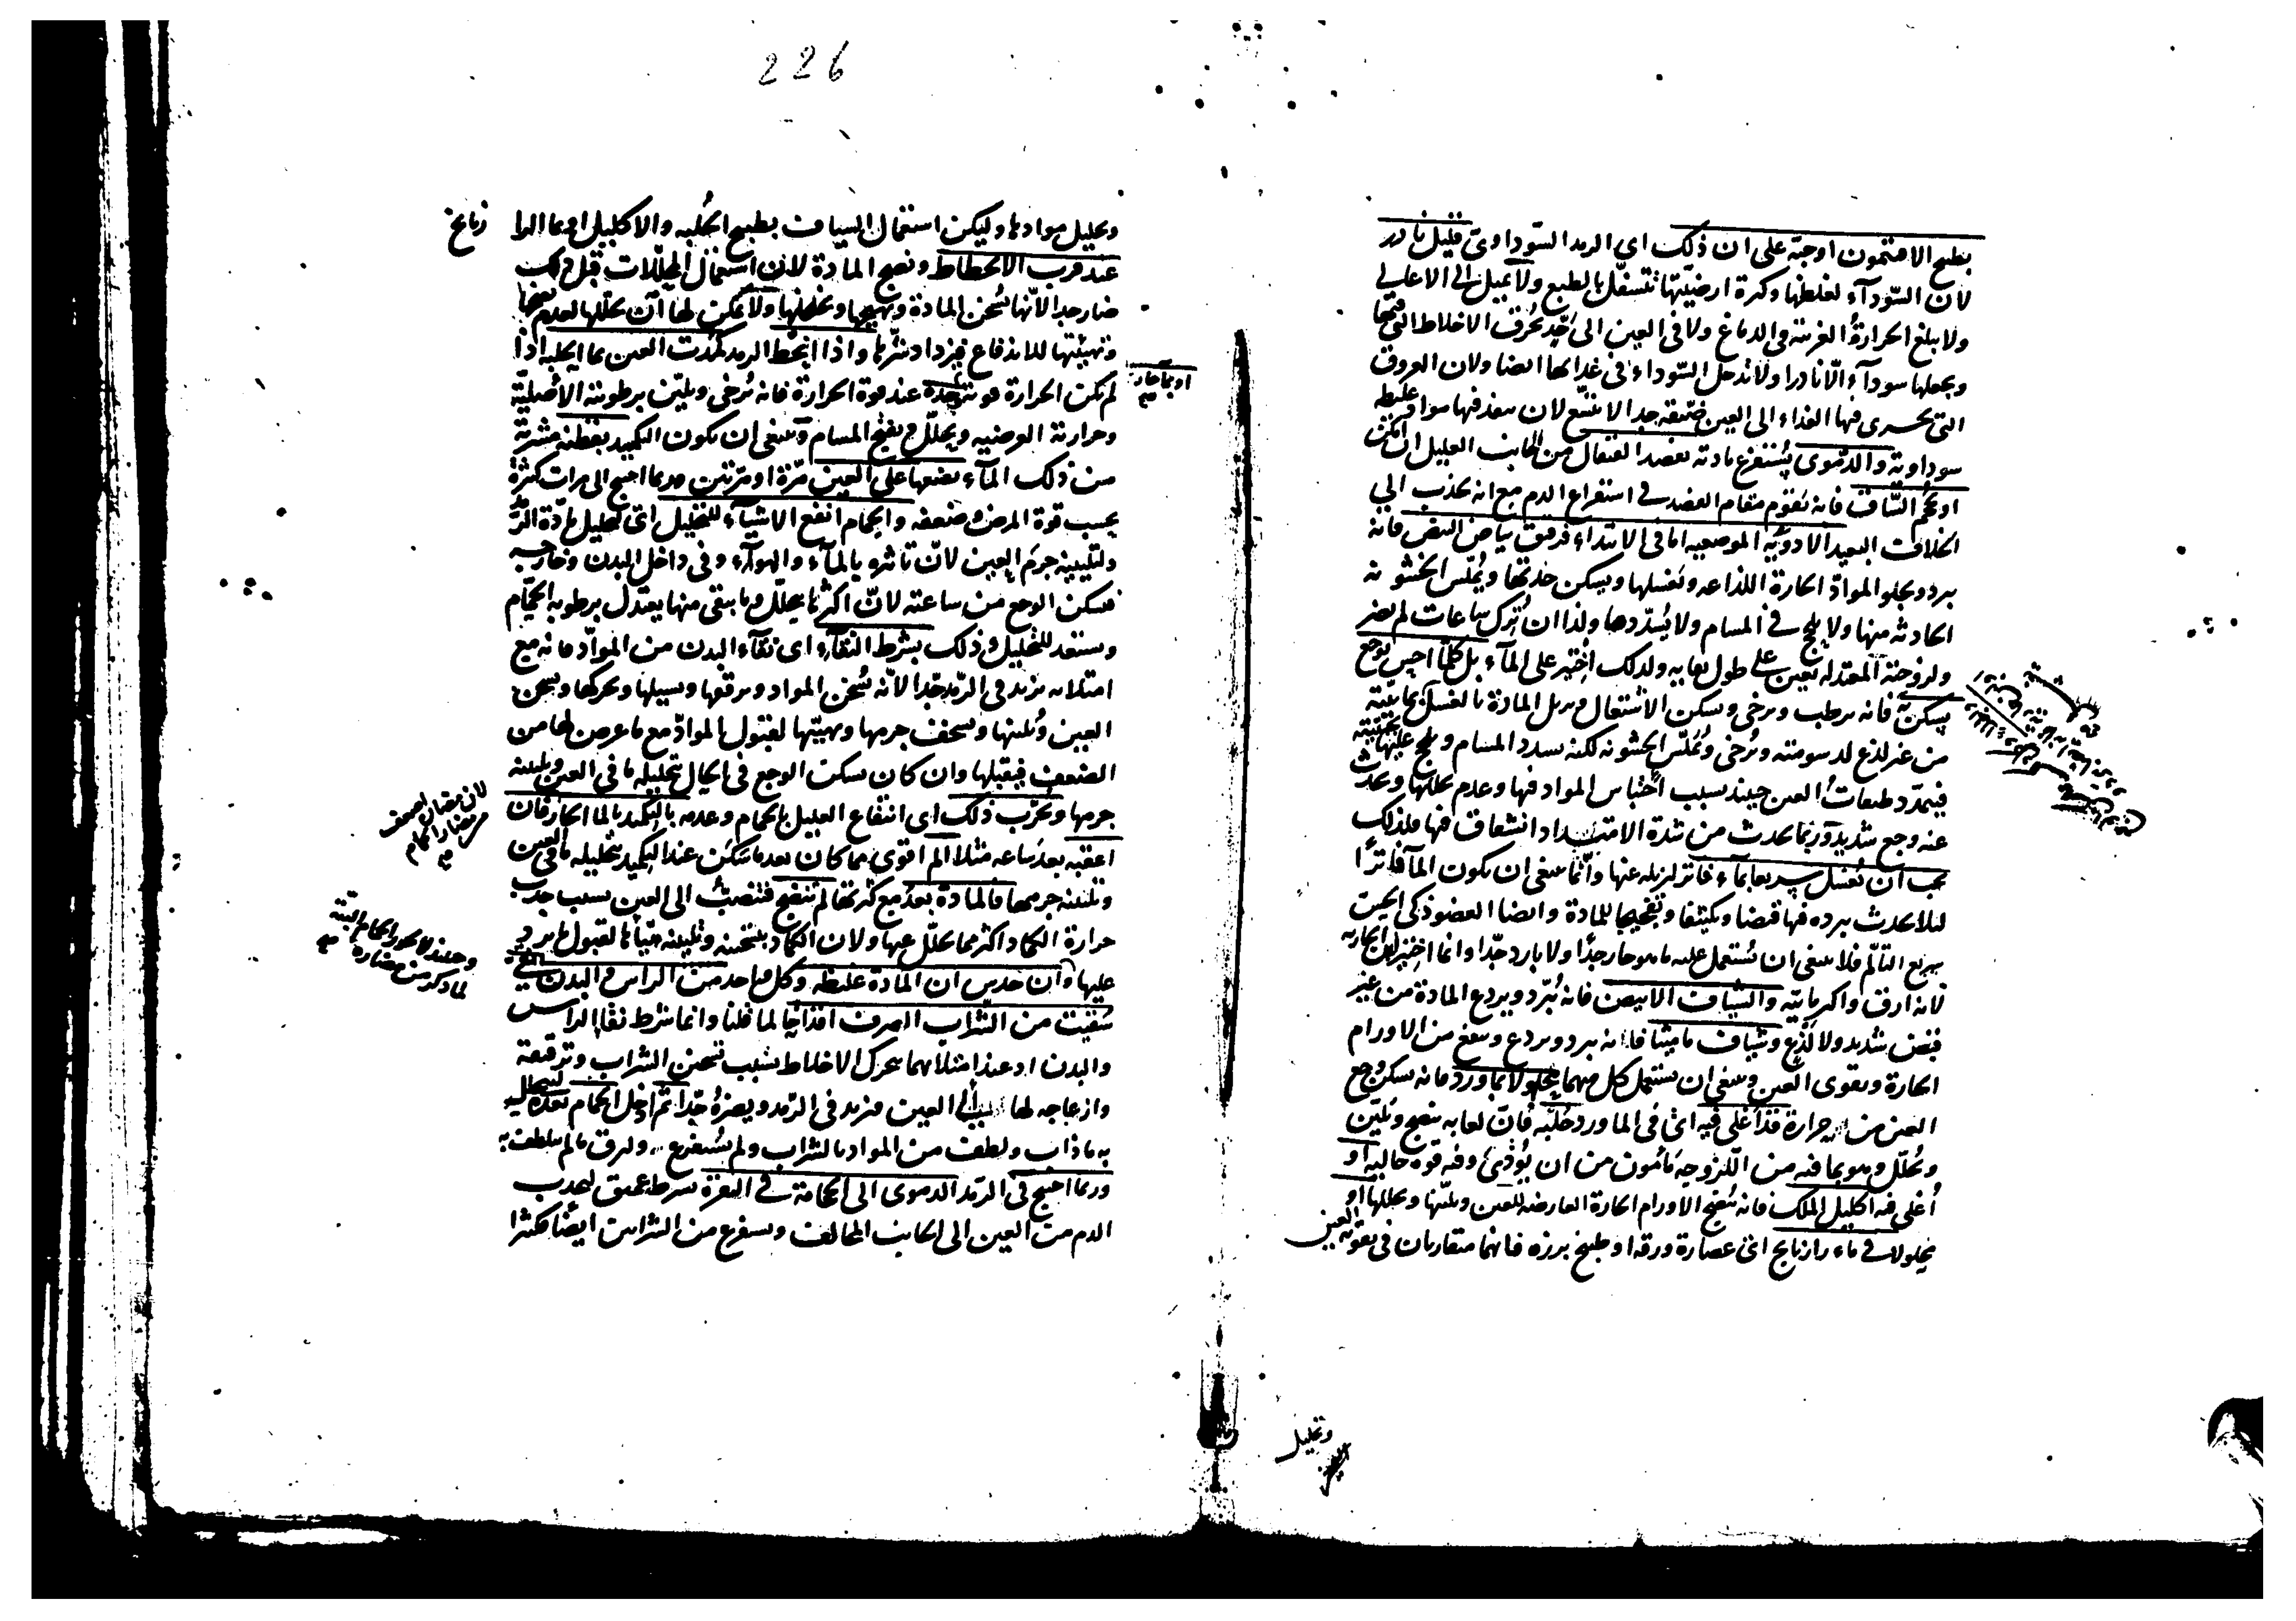 بطبيخ الافتيمون او حبه على ان ذلك اى الرمد السوداوى قليل نادر
لان السودآء لغلظها وكثرة ارضيتها تتسفل بالطبع ولا تميل الى الاعالى
ولا يبلغ الحرارة الغريبة فى الدماغ ولا فى العين الى حد تحرق الاخلاط التى فيها
وتجعلها سودآء الا نادرا ولا تدخل السوداء فى غذائها ايضا ولان العروق
التى تجرى فيها الغذاء الى العين ضيقة جدا لا تتسع لان ينفذ فيها مواد غليظة
سوداوية والدموى يستفرغ مادته بفصد القيفال من الجانب العليل ان امكن
او حجم الساق فانه يقوم مقام الفصد فى استفراغ الدم مع انه يجذب الى
الخلاف البعيد الادوية الموضعيه اما فى الابتداء فرقيق بياض البيض فانه
يبرد ويجلو المواد الحارة اللذاعه ويغسلها ويسكن حدتها ويملس الخشونه
الحادثه منها ولا يلحج فى المسام ولا يسددها ولذا ان ترك ساعات لم يضر
ولزوجته المعتدله تعين على طول بقايه ولذلك اختير على المآء بل كلما احس بوجع
يسكن به فانه يرطب ويرخى ويسكن الاشتعال ويزيل المادة بالغسل بمائيته
من غير لذع لدسومته ويرخى ويملس الخشونه لكنه يسدد المسام ويلحج عليها
فيتمدد طبقات العين حينئذ بسبب احتباس المواد فيها وعدم تحللها ويحدث
عنه وجع شديد وربما يحدث من شدة الامتداد انشقاق فيها فلذلك
يجب ان يغسل سريعا بمآء فاتر ليزيله عنها وانما ينبغى ان يكون المآء فاترا
لئلا يحدث ببرده فيها قبضا وتكثيفا وتفجيجا للمادة وايضا العضو ذكى الحس
سريع التألم فلا ينبغى ان يستعمل عليه ما هو حار جدا ولا بارد جدا وانما اختير
لانه ارق واكثر مائيه والشياف الابيض فانه يبرد ويردع المادة من غير
قبض شديد ولا لذع وشياف ماميثا فانه يبرد ويردع وينفع من الاورام
الحارة ويقوى العين وينبغى ان يستعمل كل منهما محلولا بماورد فانه يسكن وجع
العين من حرارة قد اغلى فيه اى فى الماورد حلبة فان لعابه ينضج ويلين
ويحلل وهو بما فيه من اللزوجة مأمون من ان يؤذى وفيه قوة جالية او
اغلى فيه اكليل الملك فانه ينضج الاورام الحارة العارضه للعين ويلينها ويحللها او
محلولا فى ماء رازيانج اى عصارة ورقه او طبيخ بزره فانهما متقاربان فى تقوية العين
وتحليل
226
وتحليل موادها وليكن استعمال الشياف بطبيخ الحلبه والاكليل او بماء الرا
زيانج
عند قرب الانحطاط ونضج المادة لان استعمال المحللات قبل ذلك
ضار جدا لانها تسخن المادة وتهيجها وتخلخلها ولا يمكن لها ان تحللها لعدم نضجها
وتهيئتها للاندفاع فيزداد شرها واذا انحط الرمد كمدت العين بماء الحلبه اذا
او بماء حار
لم تكن الحرارة قوية وحده عند قوة الحرارة فانه يرخى ويلين برطوبته الاصلية
وحرارته العرضيه ويحلل ويفتح المسام وينبغى ان يكون التكميد بقطنة مشربة
من ذلك المآء يضعها على العين مرة او مرتين وربما احتيج الى مرات كثيرة
بحسب قوة المرض وضعفه والحمام انفع الاشيآء للتحليل اى لتحليل مادة الرمد
ولتليينه جرم العين لان تاثيره بالمآء والهوآء وفى داخل البدن وخارجه
فيسكن الوجع من ساعته لان اكثرها يحلل وما يبقى منها يعتدل برطوبة الحمام
ويستعد للتحليل وذلك بشرط النقآء اى نقآء البدن من المواد فانه مع
امتلائه يزيد فى الرمد جدا لانه يسخن المواد ويرققها ويسيلها ويحركها ويسخن
العين ويلينها ويسخف جرمها ويهيئها لقبول المواد مع ما عرض لها من
الضعف فيقبلها وان كان يسكن الوجع فى الحال بتحليله ما فى العين وتليينه
جرمها ويجرب ذلك اى انتفاع العليل بالحمام وعدمه بالتكميد بالماء الحار فان
اعقبه بعد ساعه مثلا الم اقوى مما كان بعد ما سكن عند التكميد بتحليله ما فى العين
وتليينه جرمها فالمادة بعد مع كثرتها لم تنضج فتنصب الى العين بسبب جذب
حرارة الكماد اكثر مما يحلل عنها ولان الكماد بتسخينه وتليينه هيأها لقبول ما يرد
عليها وان حدس ان المادة غليظة وكل واحد من الراس والبدن نقى
سقيت من الشراب الصرف اقداحا لما قلنا وانما شرط نقا الراس
والبدن اذ عند امتلائهما يتحرك الاخلاط بسبب تسخين الشراب وترقيقه
وازعاجه لها الى العين فيزيد فى الرمد ويضره جدا ثم ادخل الحمام بعده ليتحلل
به ما ذاب ولطف من المواد بالشراب ولم يستفرغ وليرق ما لم يتلطف به
وربما احتيج فى الرمد الدموى الى الحجامة فى النقرة بشرط عميق ليجذب
الدم من العين الى الجانب المخالف ويستفرغ من الشرايين ايضا كثيرا